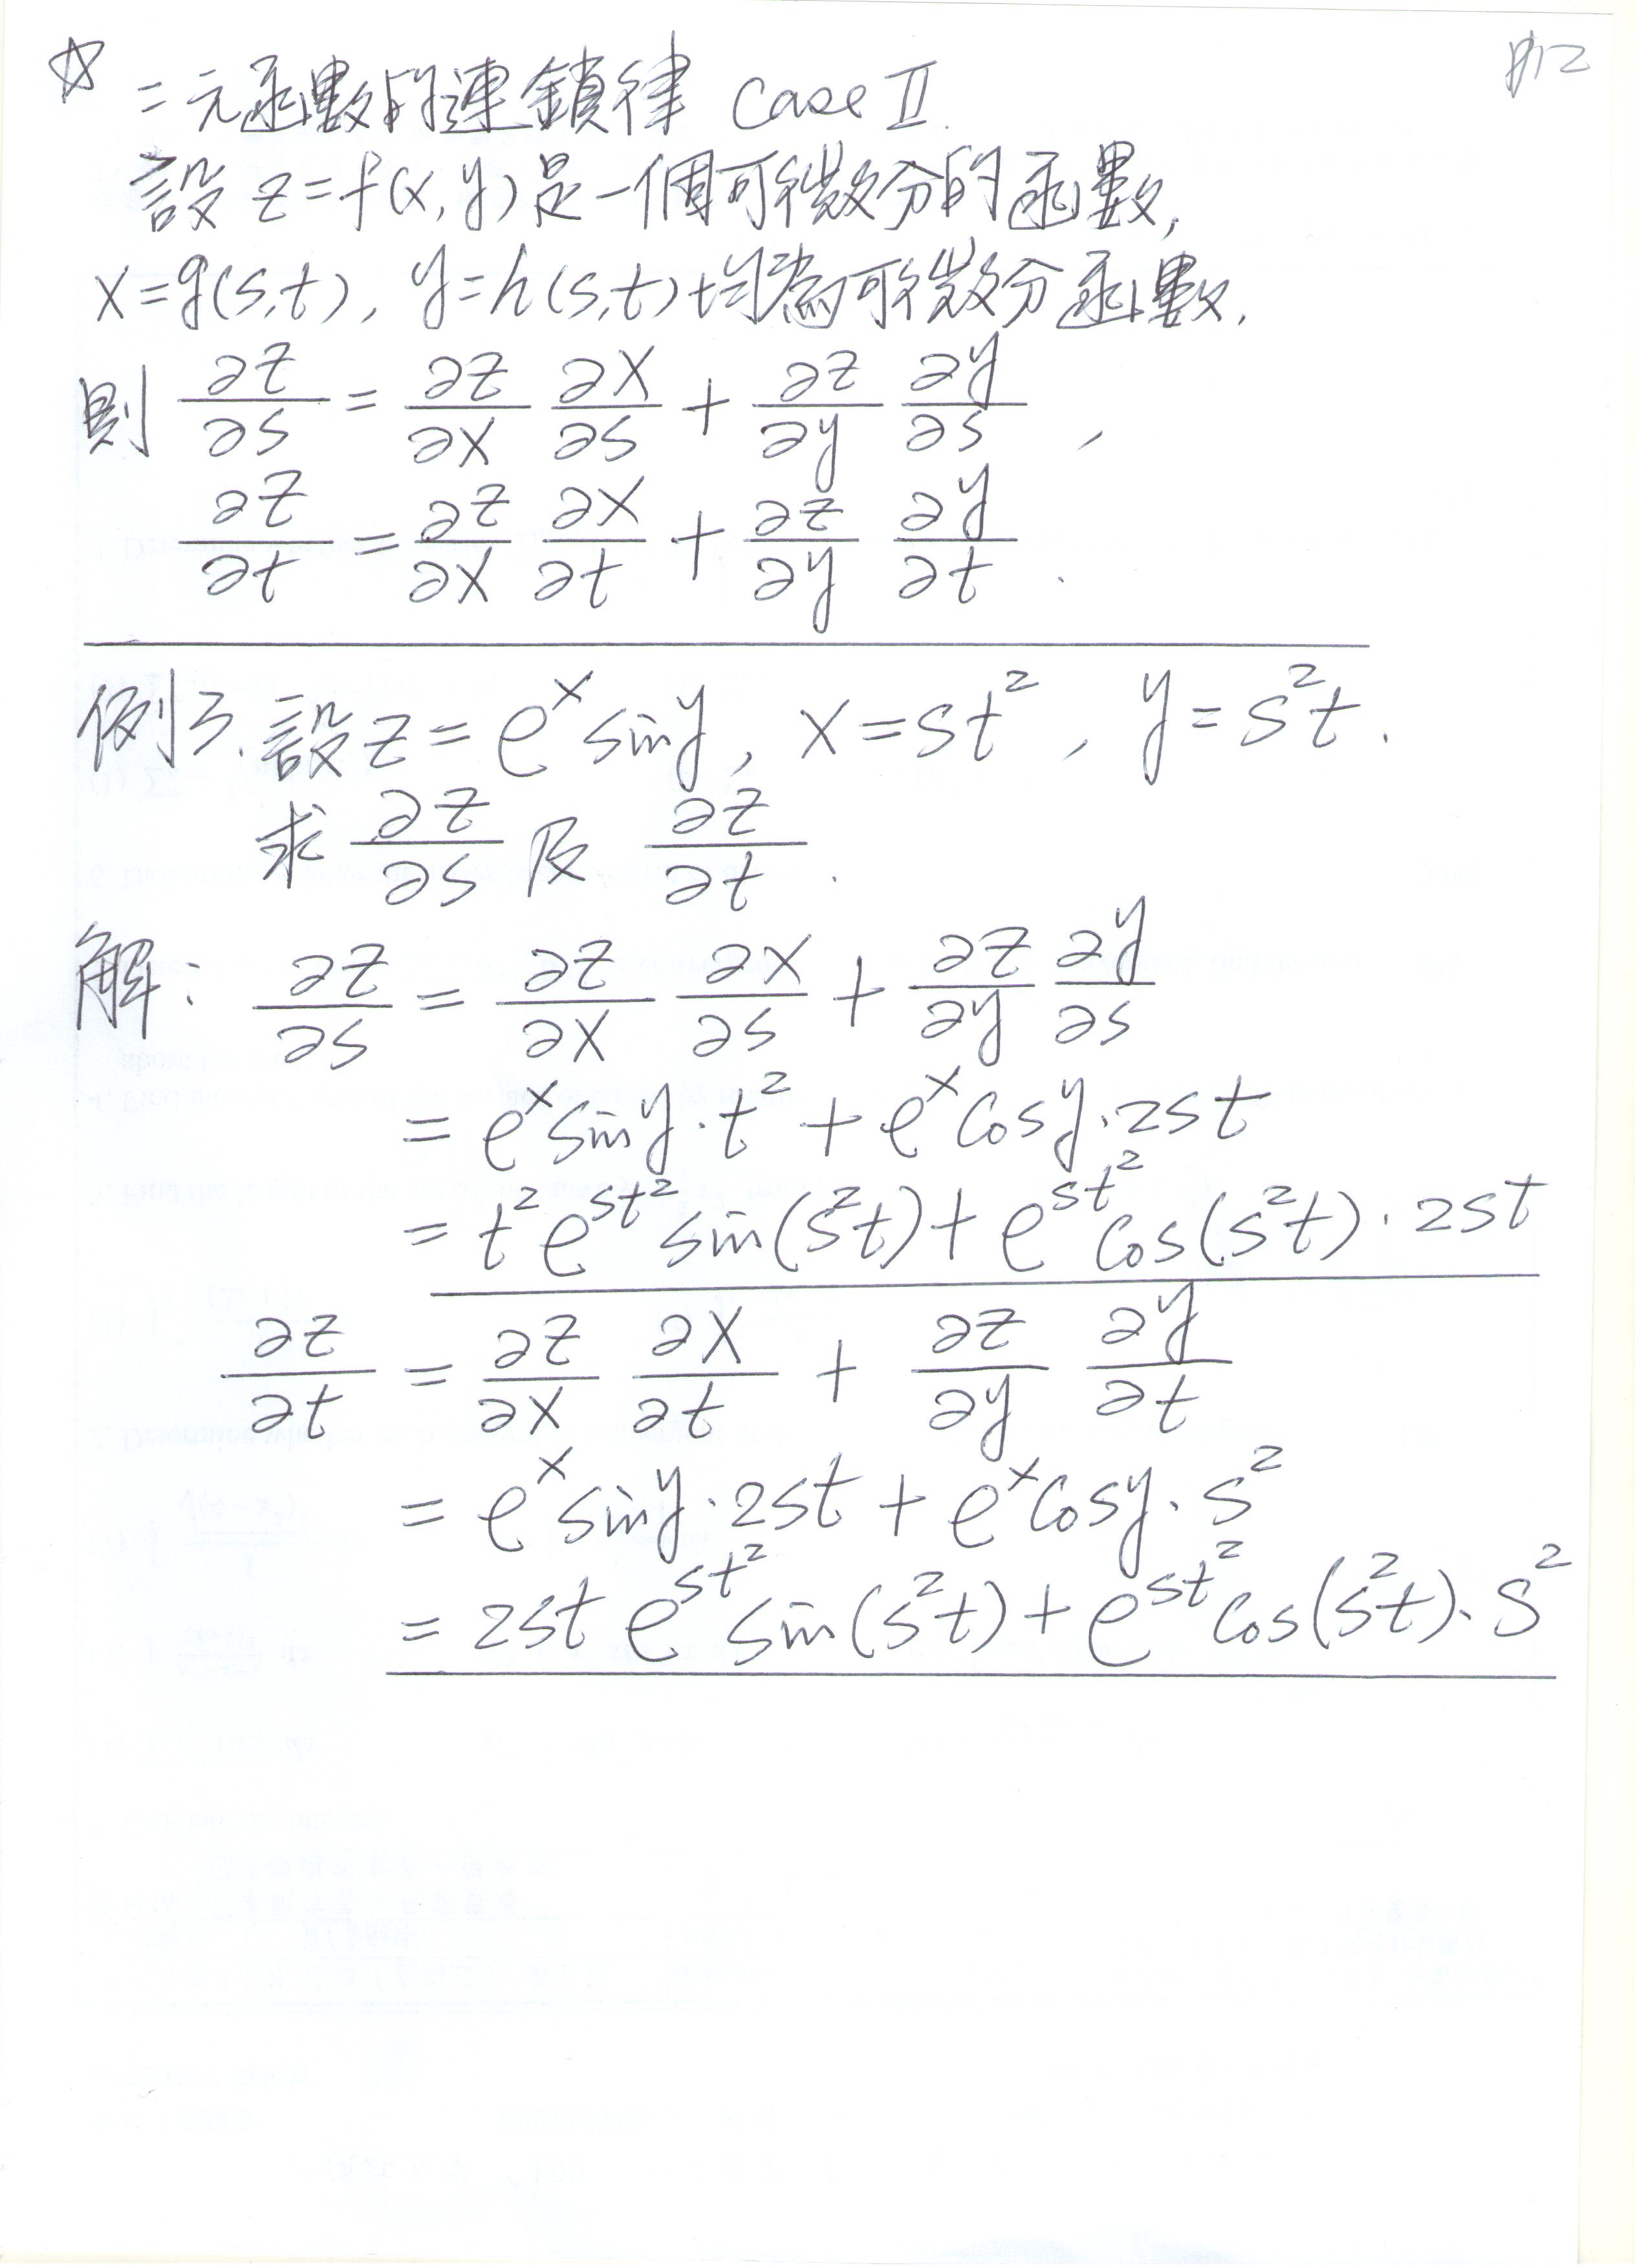 p12
☆ 二元函數的連鎖律 Case II.
設 z=f(x,y)是一個可微分的函數,
x=g(s,t), y=h(s,t)均為可微分函數.
則 ∂z/∂s = ∂z/∂x ∂x/∂s + ∂z/∂y ∂y/∂s ,
∂z/∂t = ∂z/∂x ∂x/∂t + ∂z/∂y ∂y/∂t .
例3. 設 z = e^x sin y, x = st², y = s²t.
求 ∂z/∂s 及 ∂z/∂t .
解: ∂z/∂s = ∂z/∂x ∂x/∂s + ∂z/∂y ∂y/∂s
= e^x sin y · t² + e^x cos y · 2st
= t² e^(st²) sin(s²t) + e^(st²) cos(s²t) · 2st
∂z/∂t = ∂z/∂x ∂x/∂t + ∂z/∂y ∂y/∂t
= e^x sin y · 2st + e^x cos y · s²
= 2st e^(st²) sin(s²t) + e^(st²) cos(s²t) · s²